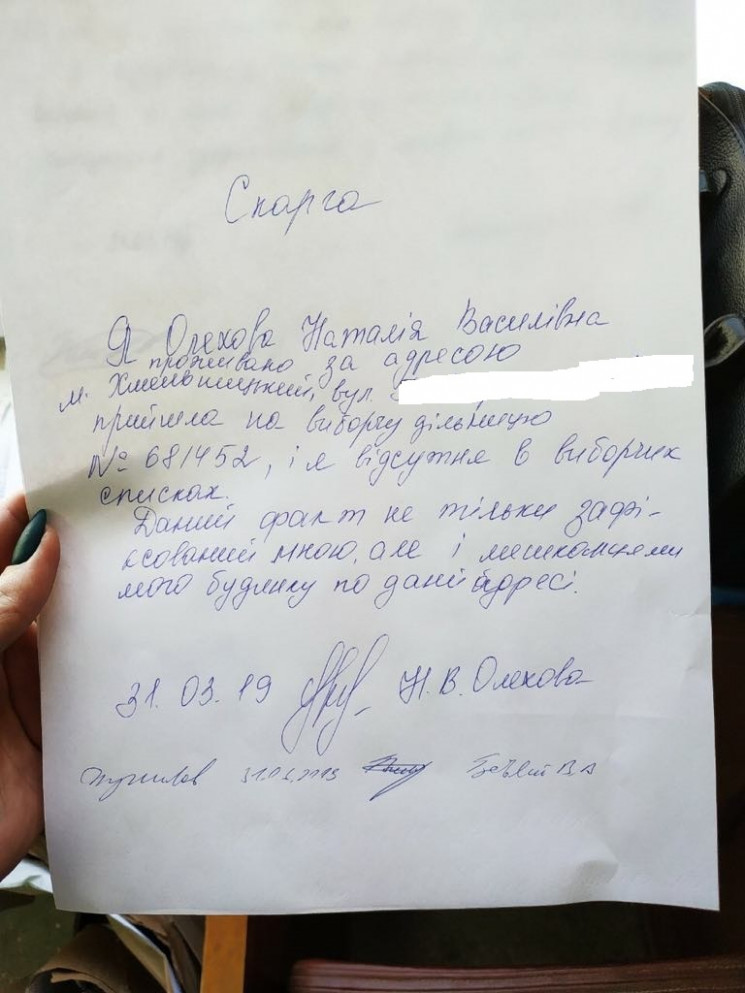 Скарга
Я Олехова Наталія Василівна
проживаю за адресою
м. Хмельницький, вул.
прийшла на виборчу дільницю
№ 681452, і я відсутня в виборчих
списках.
Даний факт не тільки зафі-
ксований мною, але і мешканцями
мого будинку по даній адресі.
31.03.19 Н.В. Олехова
31.03.2019 В.А